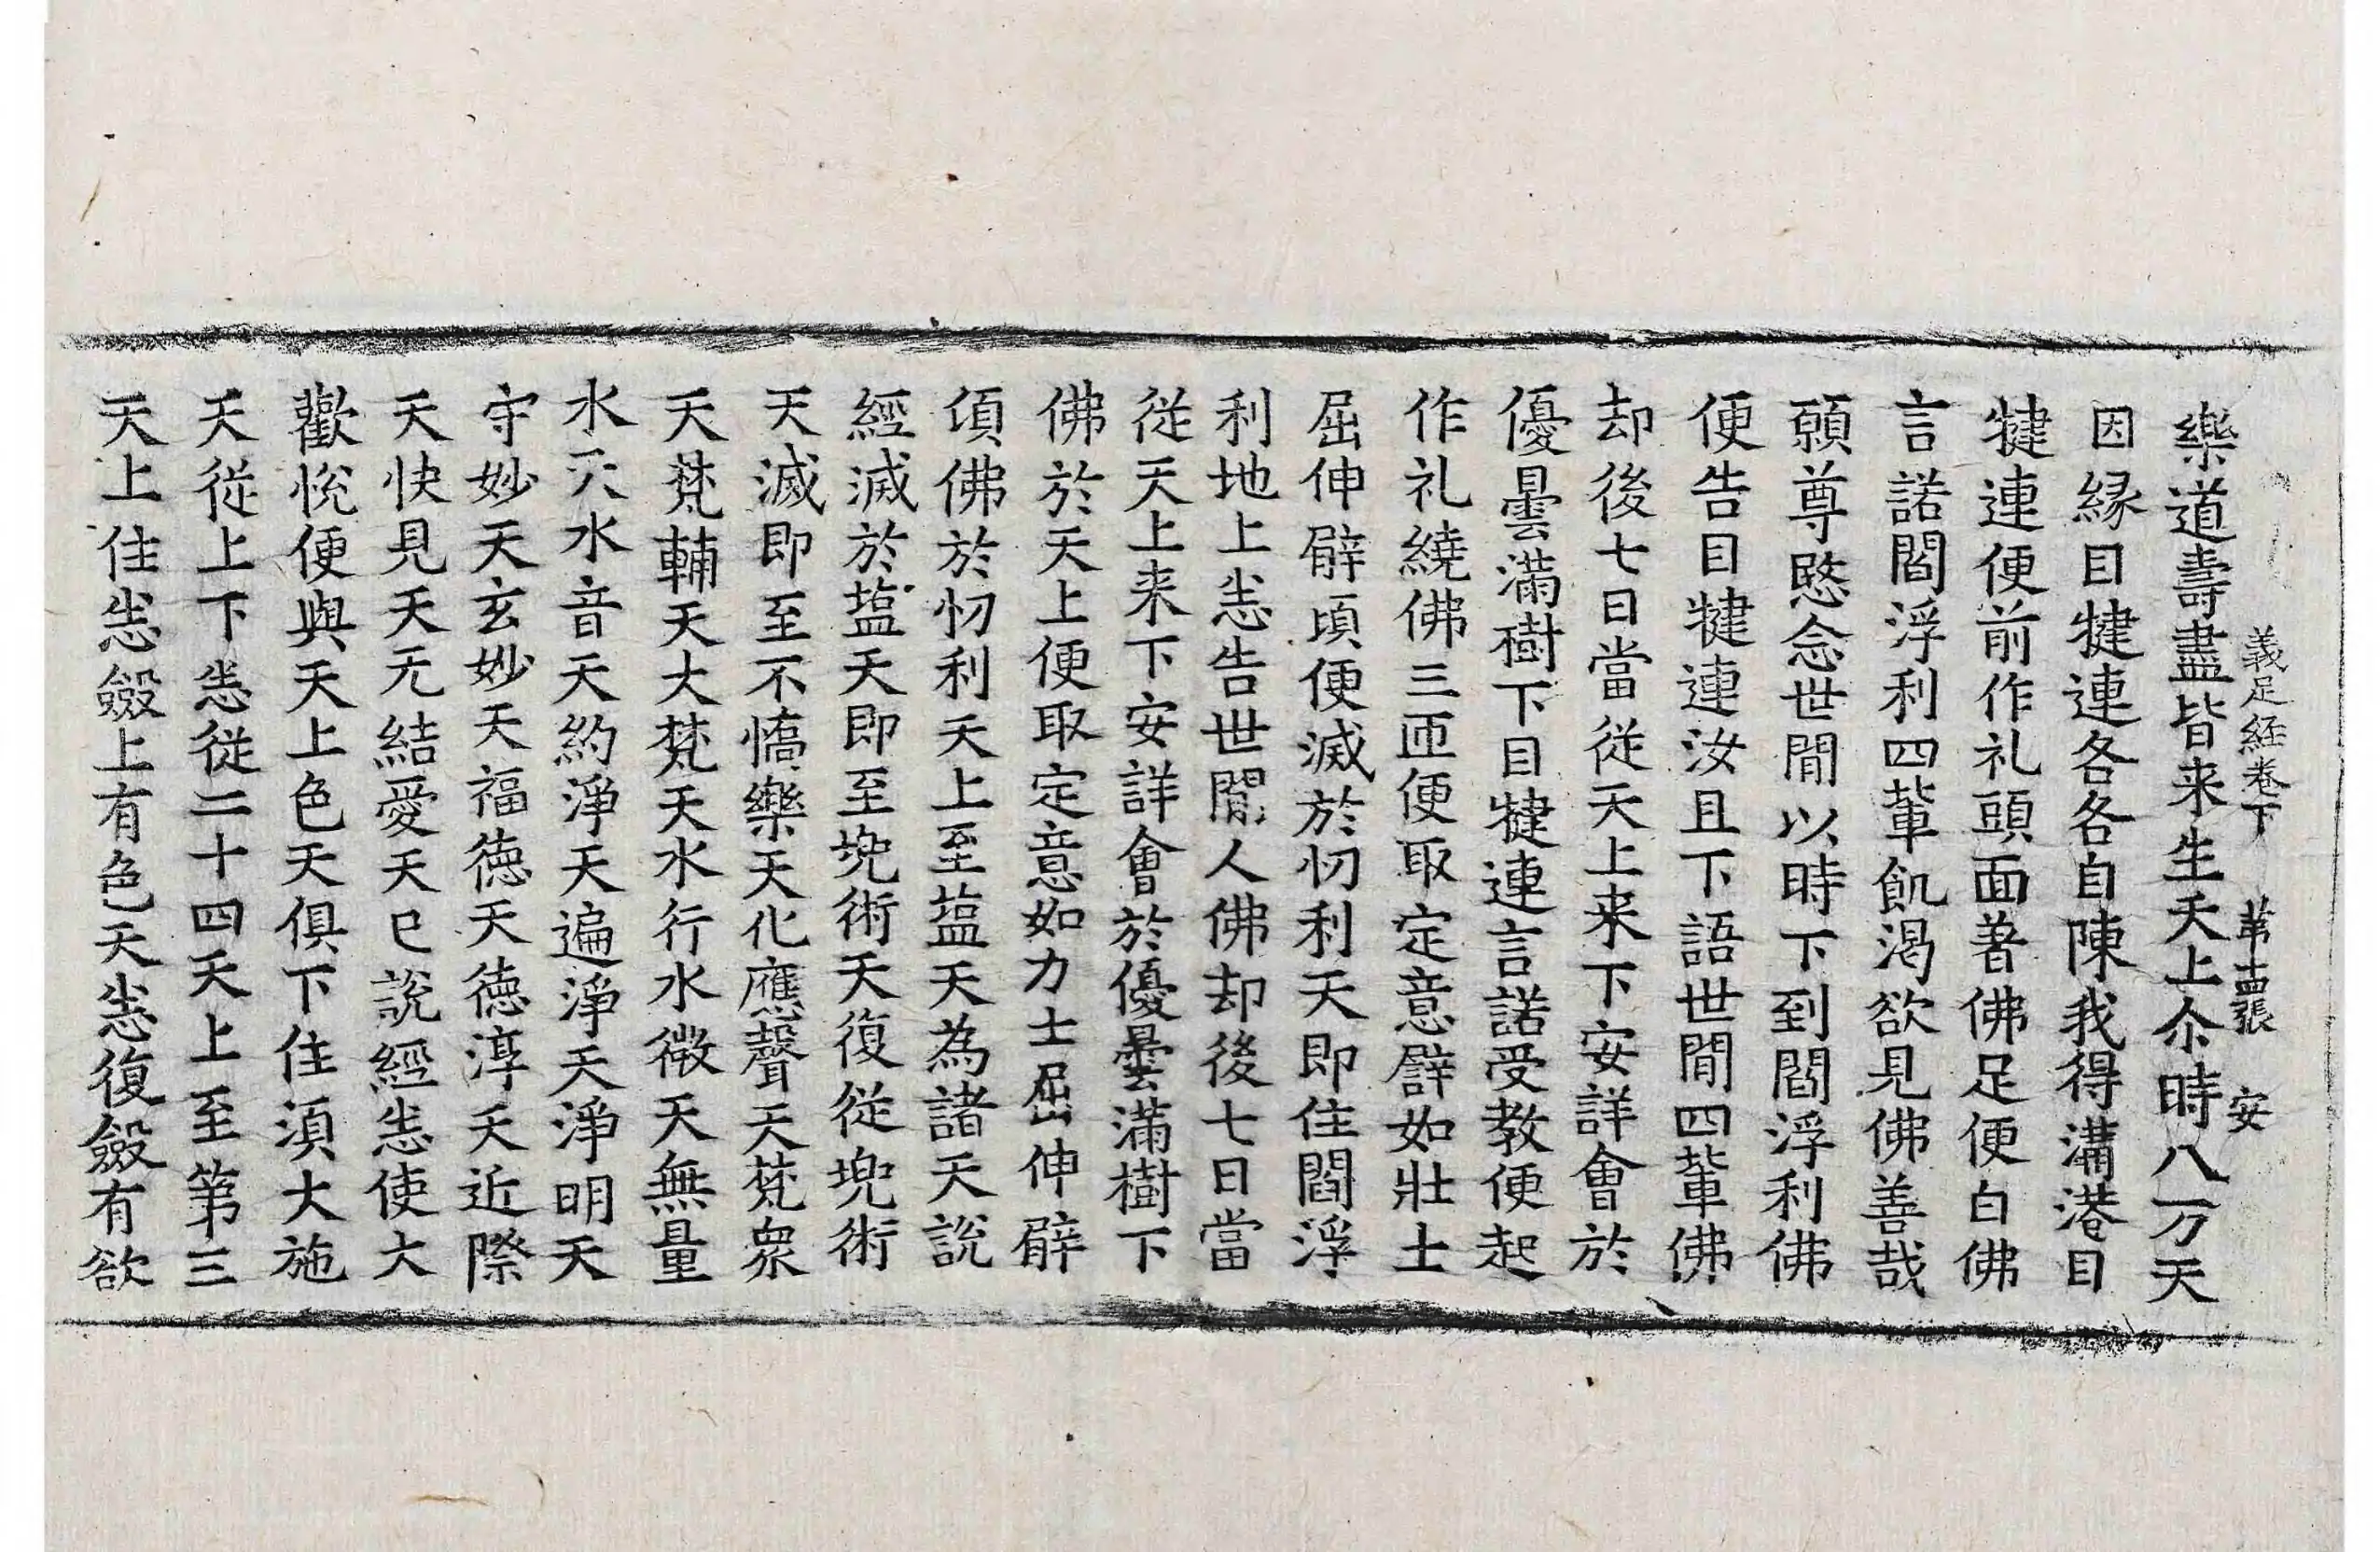 義足經卷下 苐十四張 安
樂道壽盡皆来生天上尒時八万天
因縁目犍連各各自陳我得溝港目
犍連便前作礼頭面著佛足便白佛
言諾閻浮利四軰飢渴欲見佛善哉
願尊愍念世閒以時下到閻浮利佛
便告目犍連汝且下語世閒四軰佛
却後七日當從天上来下安詳會於
優曇滿樹下目犍連言諾受教便起
作礼繞佛三匝便取定意譬如壯士
屈伸臂頃便滅於忉利天即住閻浮
利地上悉告世閒人佛却後七日當
從天上来下安詳會於優曇滿樹下
佛於天上便取定意如力士屈伸臂
頃佛於忉利天上至塩天為諸天說
經滅於塩天即至兜術天復從兜術
天滅即至不憍樂天化應聲天梵衆
天梵輔天大梵天水行水微天無量
水天水音天約淨天遍淨天淨明天
守妙天玄妙天福德天德淳天近際
天快見天无結愛天已說經悉使大
歡悅便與天上色天俱下住湏大施
天從上下悉從二十四天上至第三
天上住悉斂上有色天悉復斂有欲